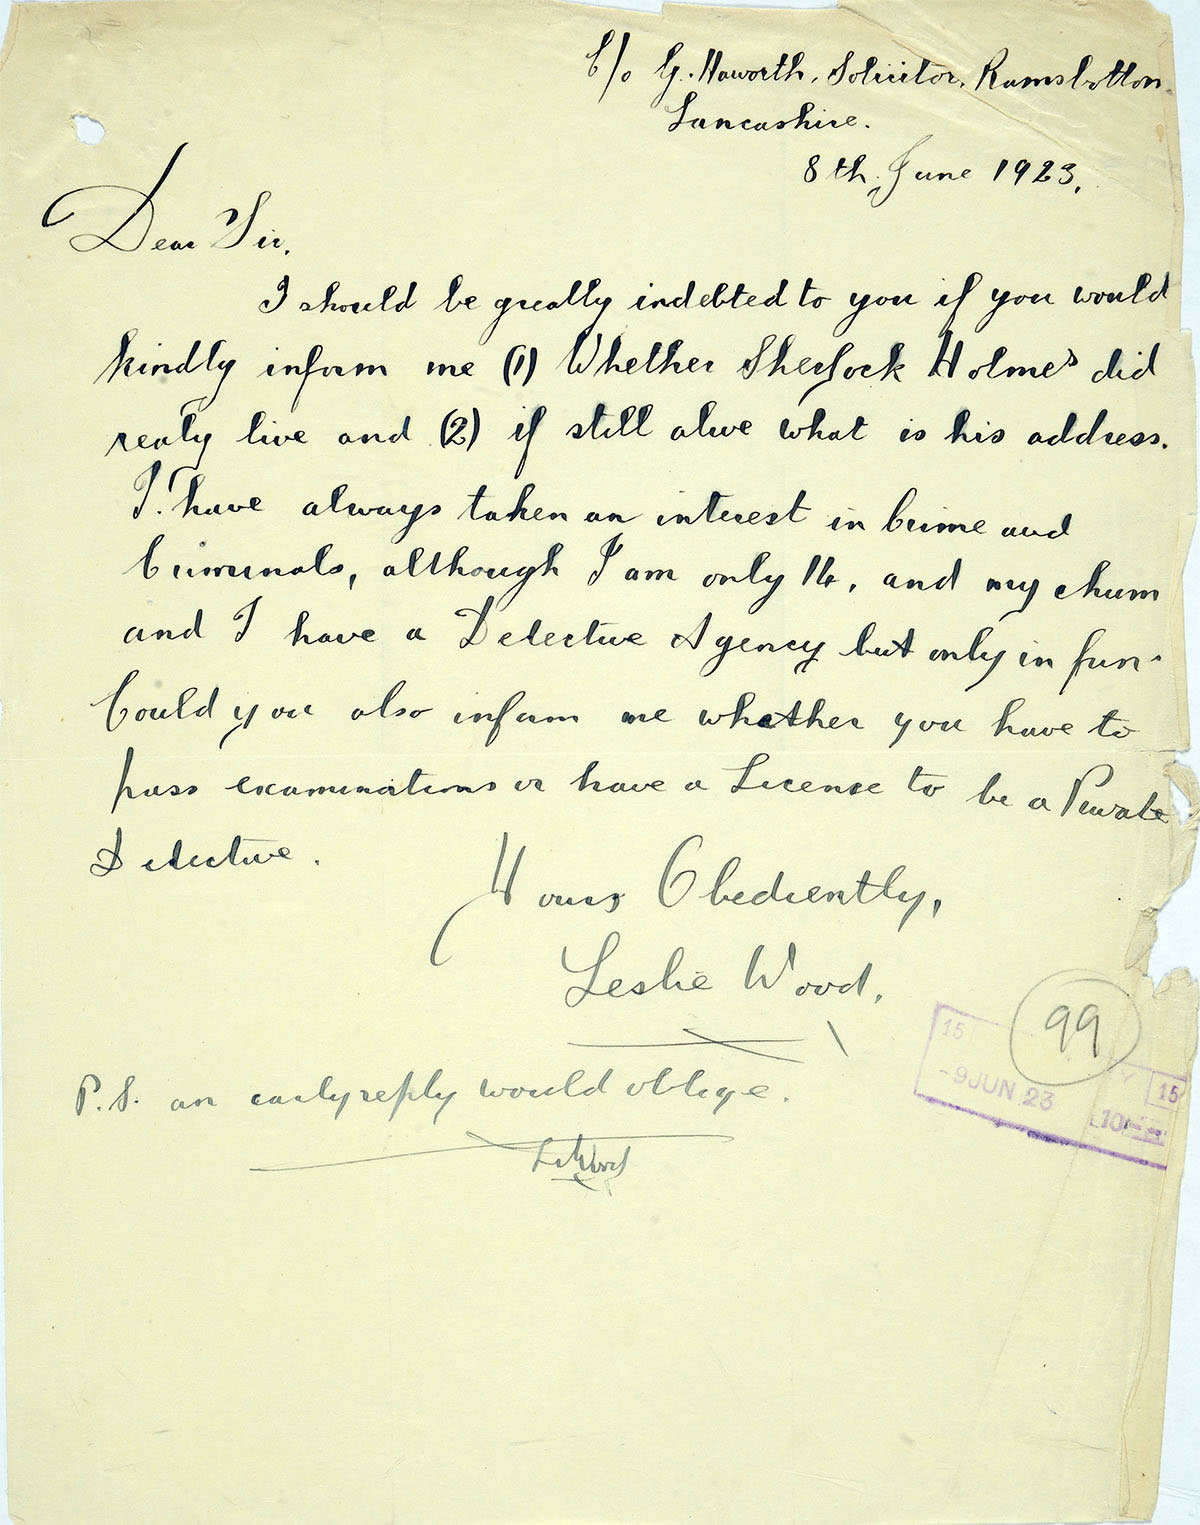 C/o G. Haworth, Solicitor, Ramsbottom
Lancashire.
8th June 1923,
Dear Sir,
I should be greatly indebted to you if you would
kindly inform me (1) Whether Sherlock Holmes did
realy live and (2) if still alive what is his address.
I have always taken an interest in Crime and
Criminals, although I am only 14, and my chum
and I have a Detective Agency but only in fun.
Could you also inform me whether you have to
pass examinations or have a License to be a Private
Detective.
Yours Obediently,
Leslie Wood.
99
15
-9 JUN 23
15
P.S. an early reply would oblige.
L. Wood